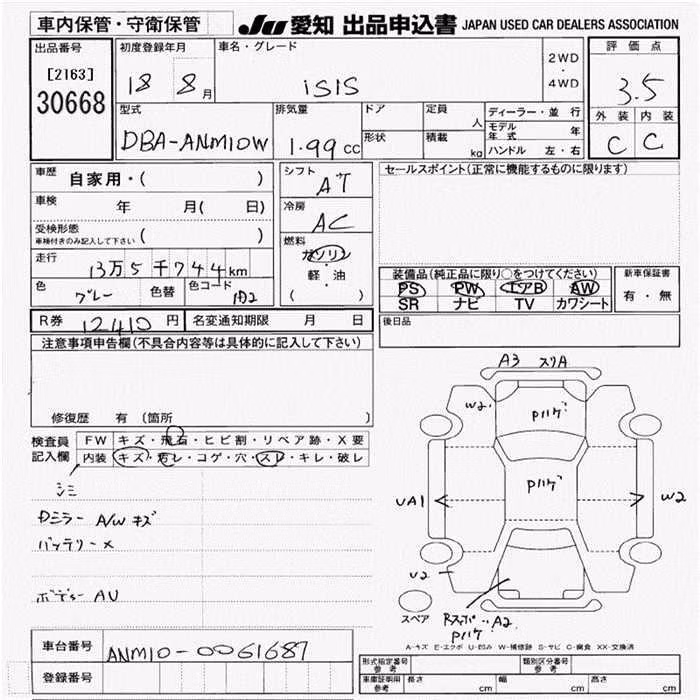 車内保管・守衛保管
JU 愛知 出品申込書 JAPAN USED CAR DEALERS ASSOCIATION
出品番号
[2163]
30668
初度登録年月
18 8月
車名・グレード
isis
2WD
・
4WD
評価点
3.5
外装 内装
C C
型式
DBA-ANM10W
排気量
1.99cc
ドア
形状
定員 人
積載 kg
ディーラー・並行
モデル年式 年
ハンドル 左・右
車歴 自家用・( )
車検 年 月( 日)
受検形態
車検付きのみ記入して下さい ( )
走行 13万5千744km
色 グレー 色替 色コード 1D2
シフト AT
冷房 AC
燃料
ガソリン
・
軽・油
( )
セールスポイント(正常に機能するものに限ります)
装備品(純正品に限り○をつけてください)
PS PW エアB AW
SR ナビ TV カワシート
新車保証書
有・無
R券 12410円 名変通知期限 月 日
後日品
注意事項申告欄(不具合内容等は具体的に記入して下さい)
修復歴 有 (箇所
検査員記入欄
FW キズ・飛石・ヒビ割・リペア跡・X要
内装 キズ・汚レ・コゲ・穴・スレ・キレ・破レ
シミ
Dミラー A/Wキズ
バッテリー×
ボディー AU
A3 スリA
W2
Pハゲ
Pハゲ
UA1
W2
U2
スペア
RスポーツA2
Pハゲ
A-キズ E-エクボ U-凹み W-補修跡 S-サビ C-腐食 XX-交換済
車台番号 ANM10-0061687
登録番号
型式指定番号 参考
類別区分番号 参考
車庫証明用 参考 長さ cm 幅 cm 高さ cm